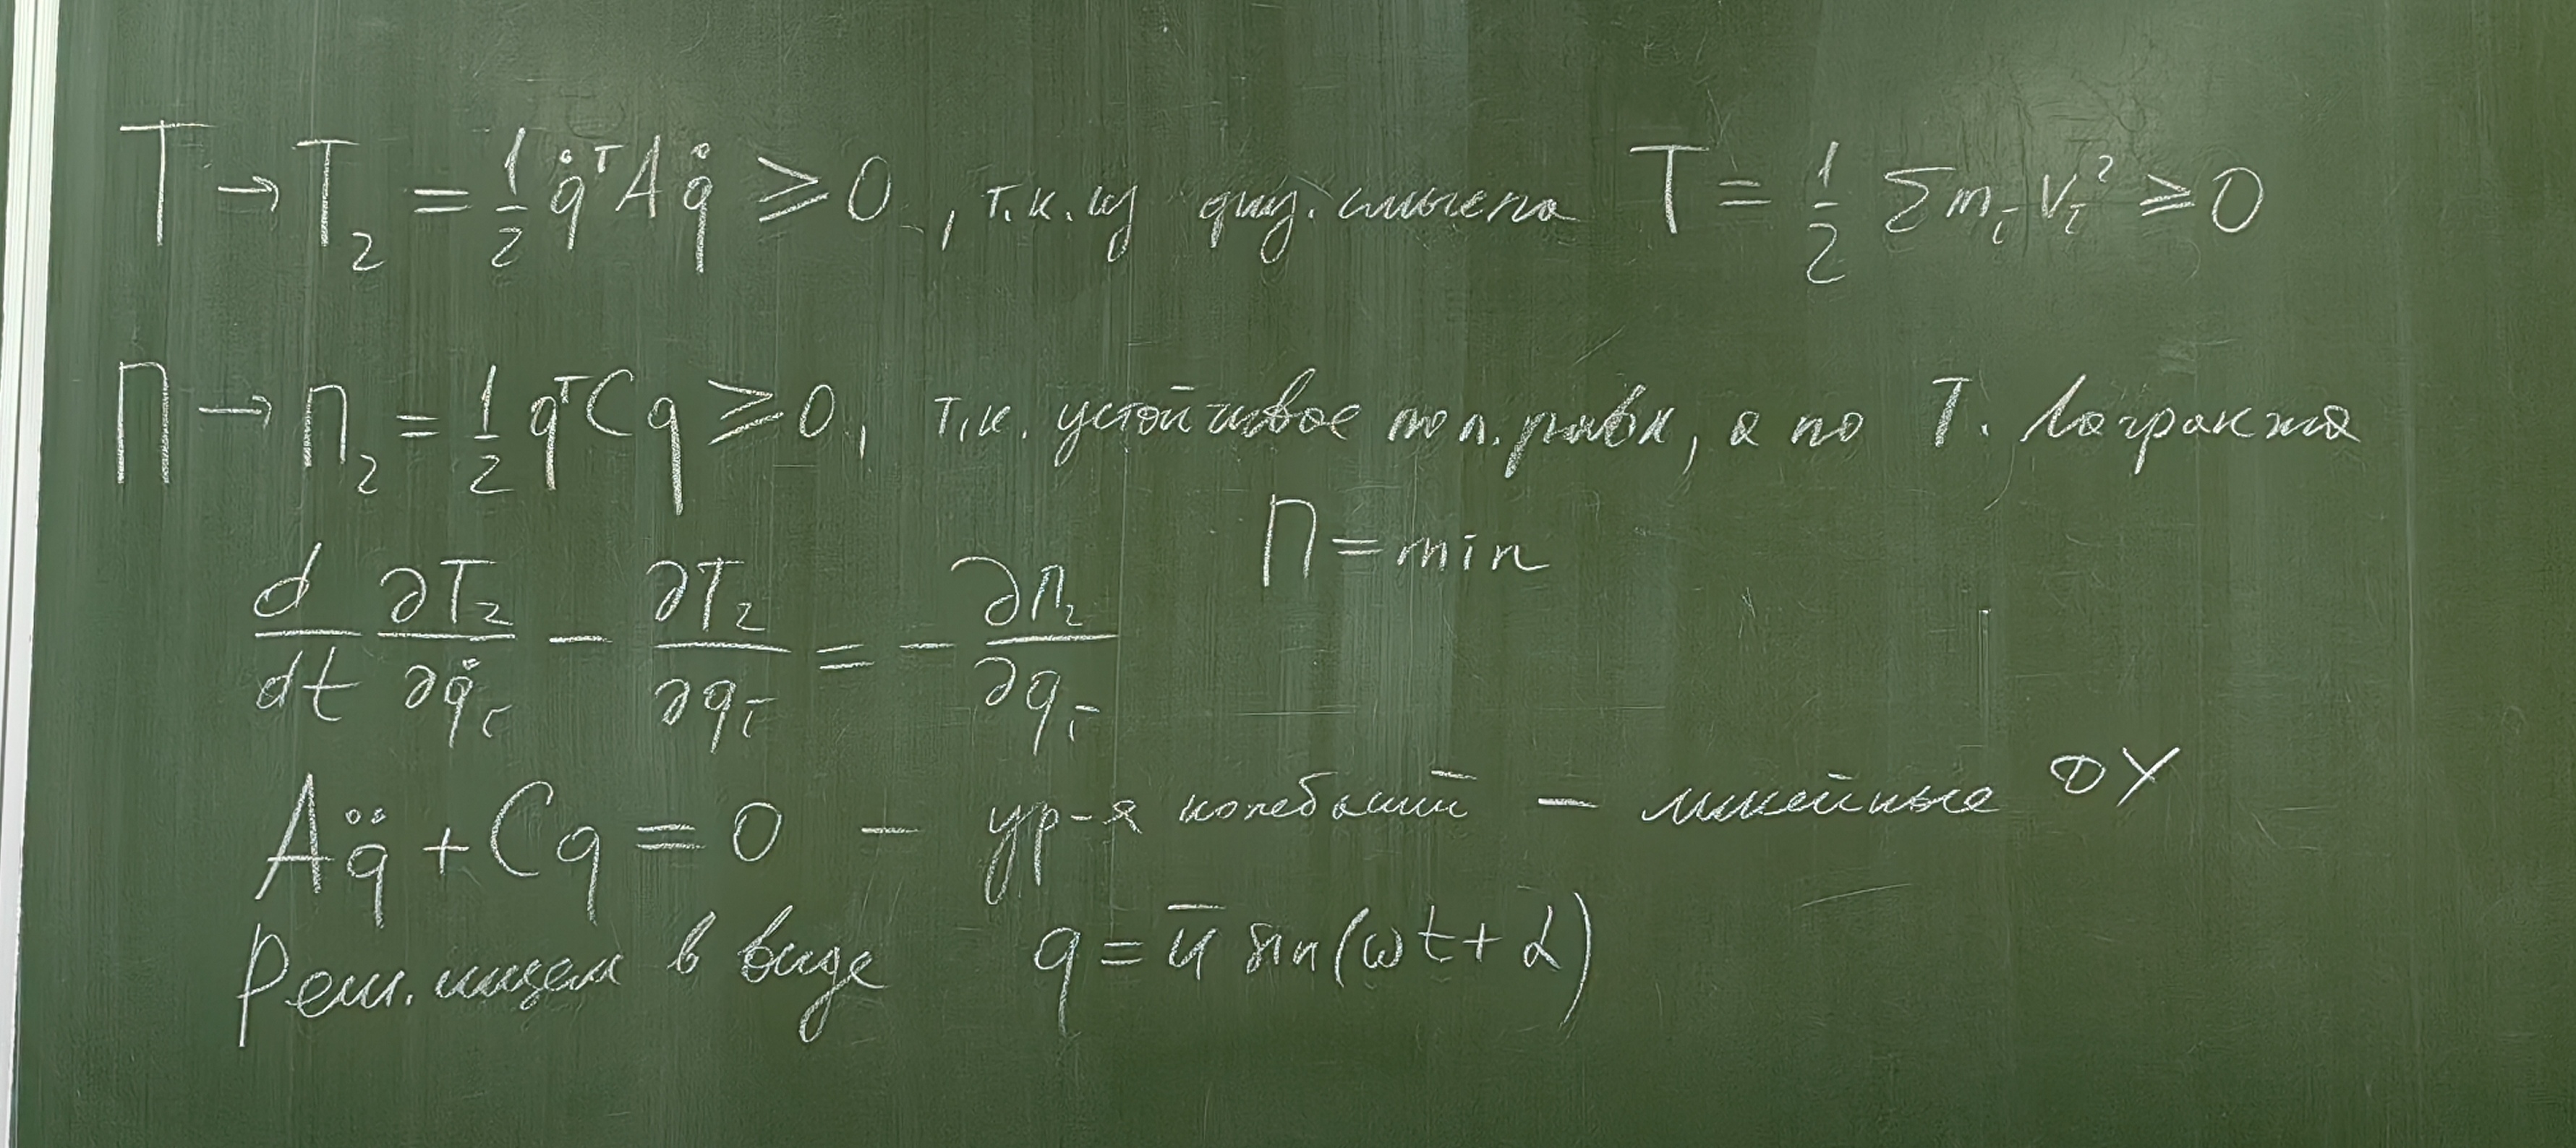 T → T₂ = 1/2 q̇ᵀAq̇ ≥ 0, т.к. из физ. смысла T = 1/2 Σmᵢvᵢ² ≥ 0
П → П₂ = 1/2 qᵀCq ≥ 0, т.к. устойчивое пол. равн, а по Т. Лагранжа
П = min
d/dt ∂T₂/∂q̇ᵢ - ∂T₂/∂qᵢ = - ∂П₂/∂qᵢ
Aq̈ + Cq = 0 - ур-я колебаний - линейные ДУ
Реш. ищем в виде q = u̅ sin(ωt + α)